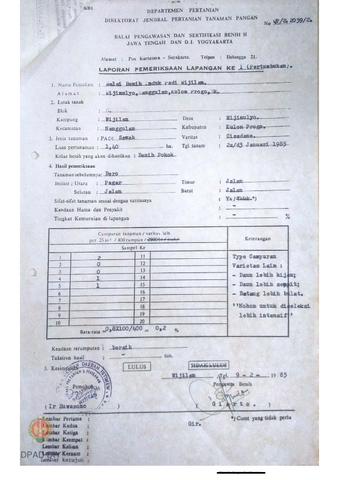 DEPARTEMEN PERTANIAN
DIREKTORAT JENDRAL PERTANIAN TANAMAN PANGAN
BALAI PENGAWASAN DAN SERTIFIKASI BENIH II
JAWA TENGAH DAN D.I. YOGYAKARTA
Alamat : Pos Kartasura - Surakarta. Telpon : Delanggu 21.
LAPORAN PEMERIKSAAN LAPANGAN KE 1 (Pertumbuhan).
1. Nama Penangkar : Balai Benih Induk Padi Wijilan,
Alamat Wijimulyo, Nanggulan, Kulon Progo,
2. Letak tanah
Blok
Kampung : Wijilan Desa : Wijimulyo.
Kecamatan : Nanggulan Kabupaten : Kulon Progo.
3. Jenis tanaman : PADI Sawah Varietas : Cisadane.
Luas pertanaman : 1,40 ha. Tgl tanam : 2s/d3 Januari 1983
Kelas benih yang akan dihasilkan : Benih Pokok.
4. Hasil pemeriksaan
Tanaman sebelumnya: Bero
Isolasi ; Utara : Pagar Timur : Jalan
Selatan : Jalan Barat : Jalan
Sifat-sifat tanaman sesuai dengan varitasnya : Ya/
Keadaan Hama dan Penyakit : -
Tingkat Kerusakan di lapangan : - %
Campuran tanaman / varitas lain
Sampel Ke
Keterangan
1 2 11
2 0 12
3 0 13
4 1 14
5 1 15
6 16
7 17
8 18
9 19
10 20
Type Campuran
Varietas Lain :
- Daun lebih hijau;
- Daun lebih sempit;
- Batang lebih bulat.
"Mohon untuk diseleksi
lebih intensif"
Rata-rata = 0,2 %
Keadaan rerumputan : bersih
Taksiran hasil : - ton.
5. Kesimpulan : LULUS TIDAK LULUS
Wijilan Tgl. 9 - 2 - 1983
Pengawas Benih
( Ir Suwasono ) ( Giarto. )
*) Coret yang tidak perlu
Lembar Pertama :
Lembar Kedua :
Lembar Ketiga :
Lembar Keempat :
Lembar Kelima :
Lembar Keenam :
Lembar ketujuh :
Gir.
DPAD